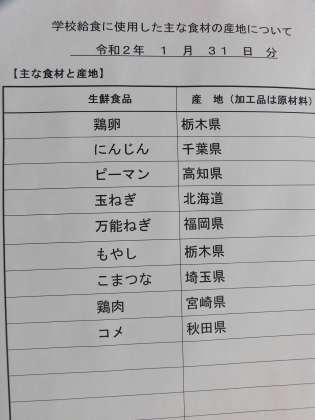 学校給食に使用した主な食材の産地について
令和2年 1 月 31 日 分
【主な食材と産地】
生鮮食品 産 地（加工品は原材料）
鶏卵 栃木県
にんじん 千葉県
ピーマン 高知県
玉ねぎ 北海道
万能ねぎ 福岡県
もやし 栃木県
こまつな 埼玉県
鶏肉 宮崎県
コメ 秋田県